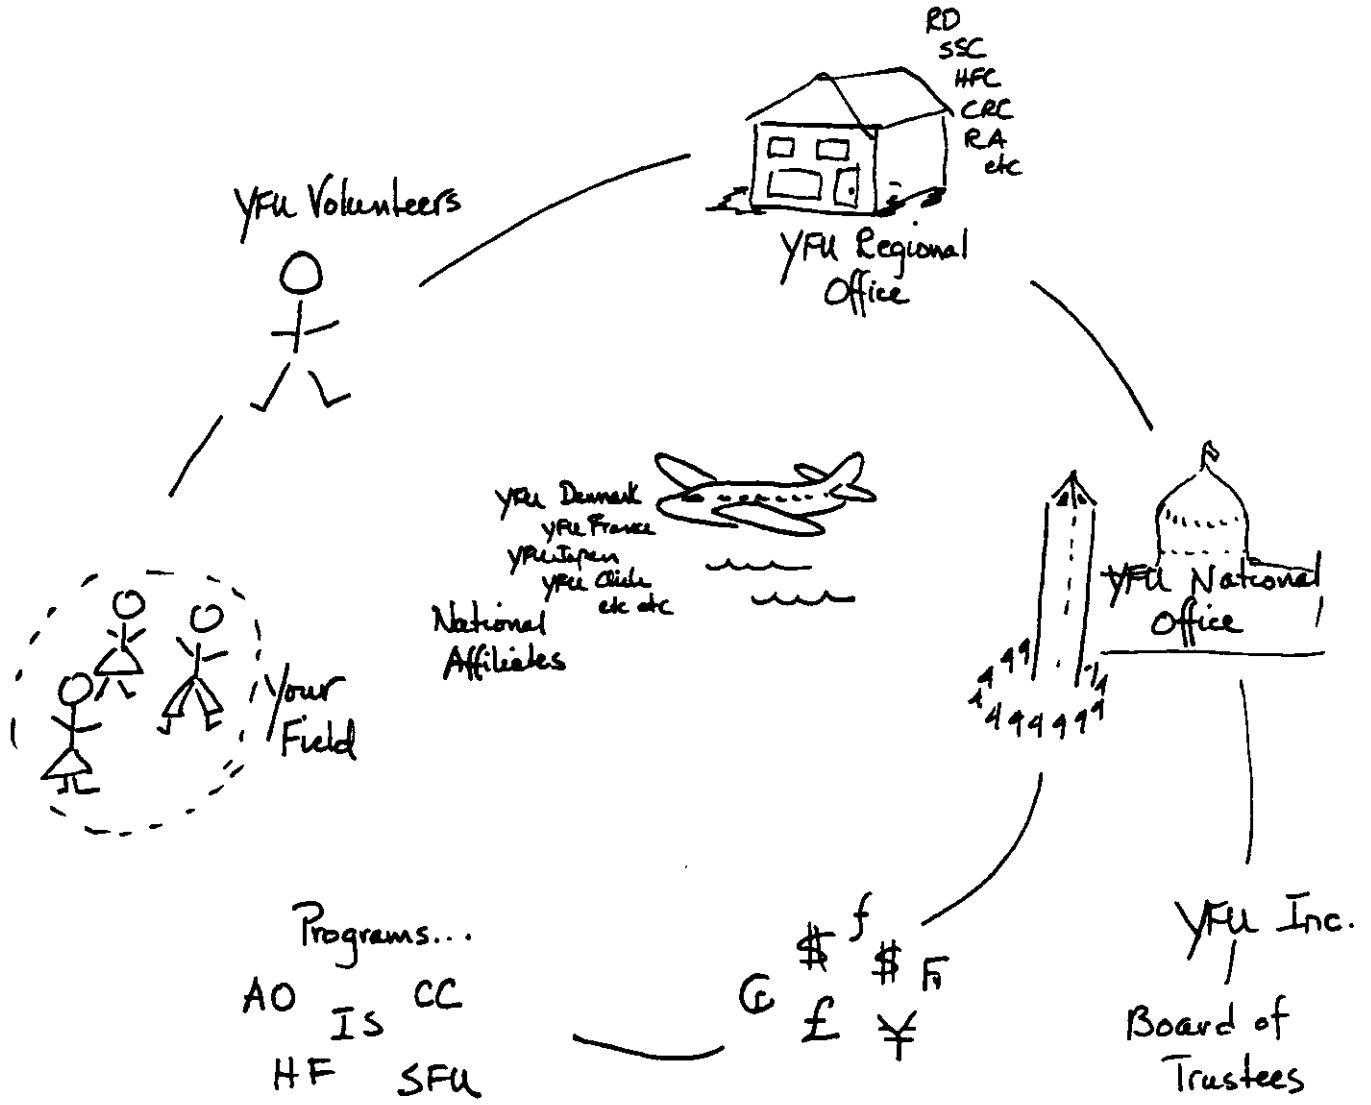 RD
SSC
HFC
CRC
RA
etc
YFU Volunteers
YFU Regional
Office
YFU Denmark
YFU France
YFU Japan
YFU Chile
etc etc
National
Affiliates
YFU National
Office
Your
Field
Programs...
AO
CC
IS
HF
SFU
$ ƒ $
₢ £ ¥
YFU Inc.
Board of
Trustees